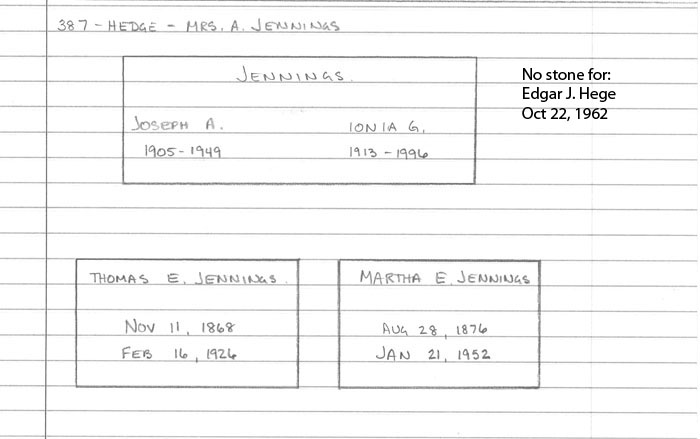 387 - HEDGE - MRS. A. JENNINGS
JENNINGS
JOSEPH A. IONIA G.
1905 - 1949 1913 - 1996
No stone for:
Edgar J. Hege
Oct 22, 1962
THOMAS E. JENNINGS
NOV 11, 1868
FEB 16, 1926
MARTHA E. JENNINGS
AUG 28, 1876
JAN 21, 1952